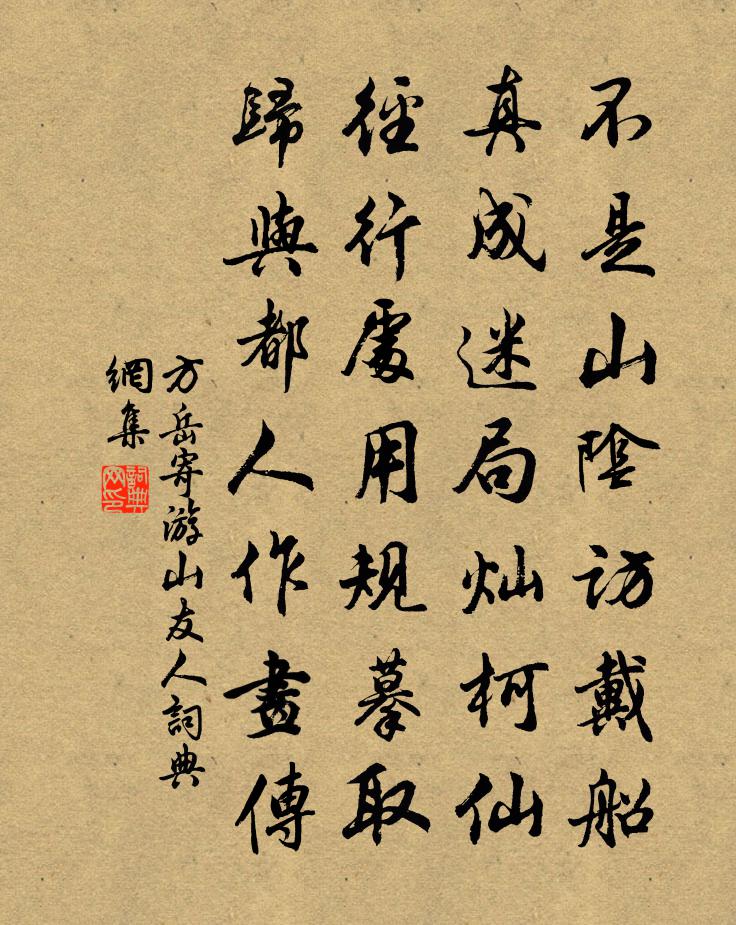 不是山陰訪戴船
真成迷局灿柯仙
徑行處用規摹取
歸與都人作畫傳
方岳寄游山友人詞典
網集
詞典网印